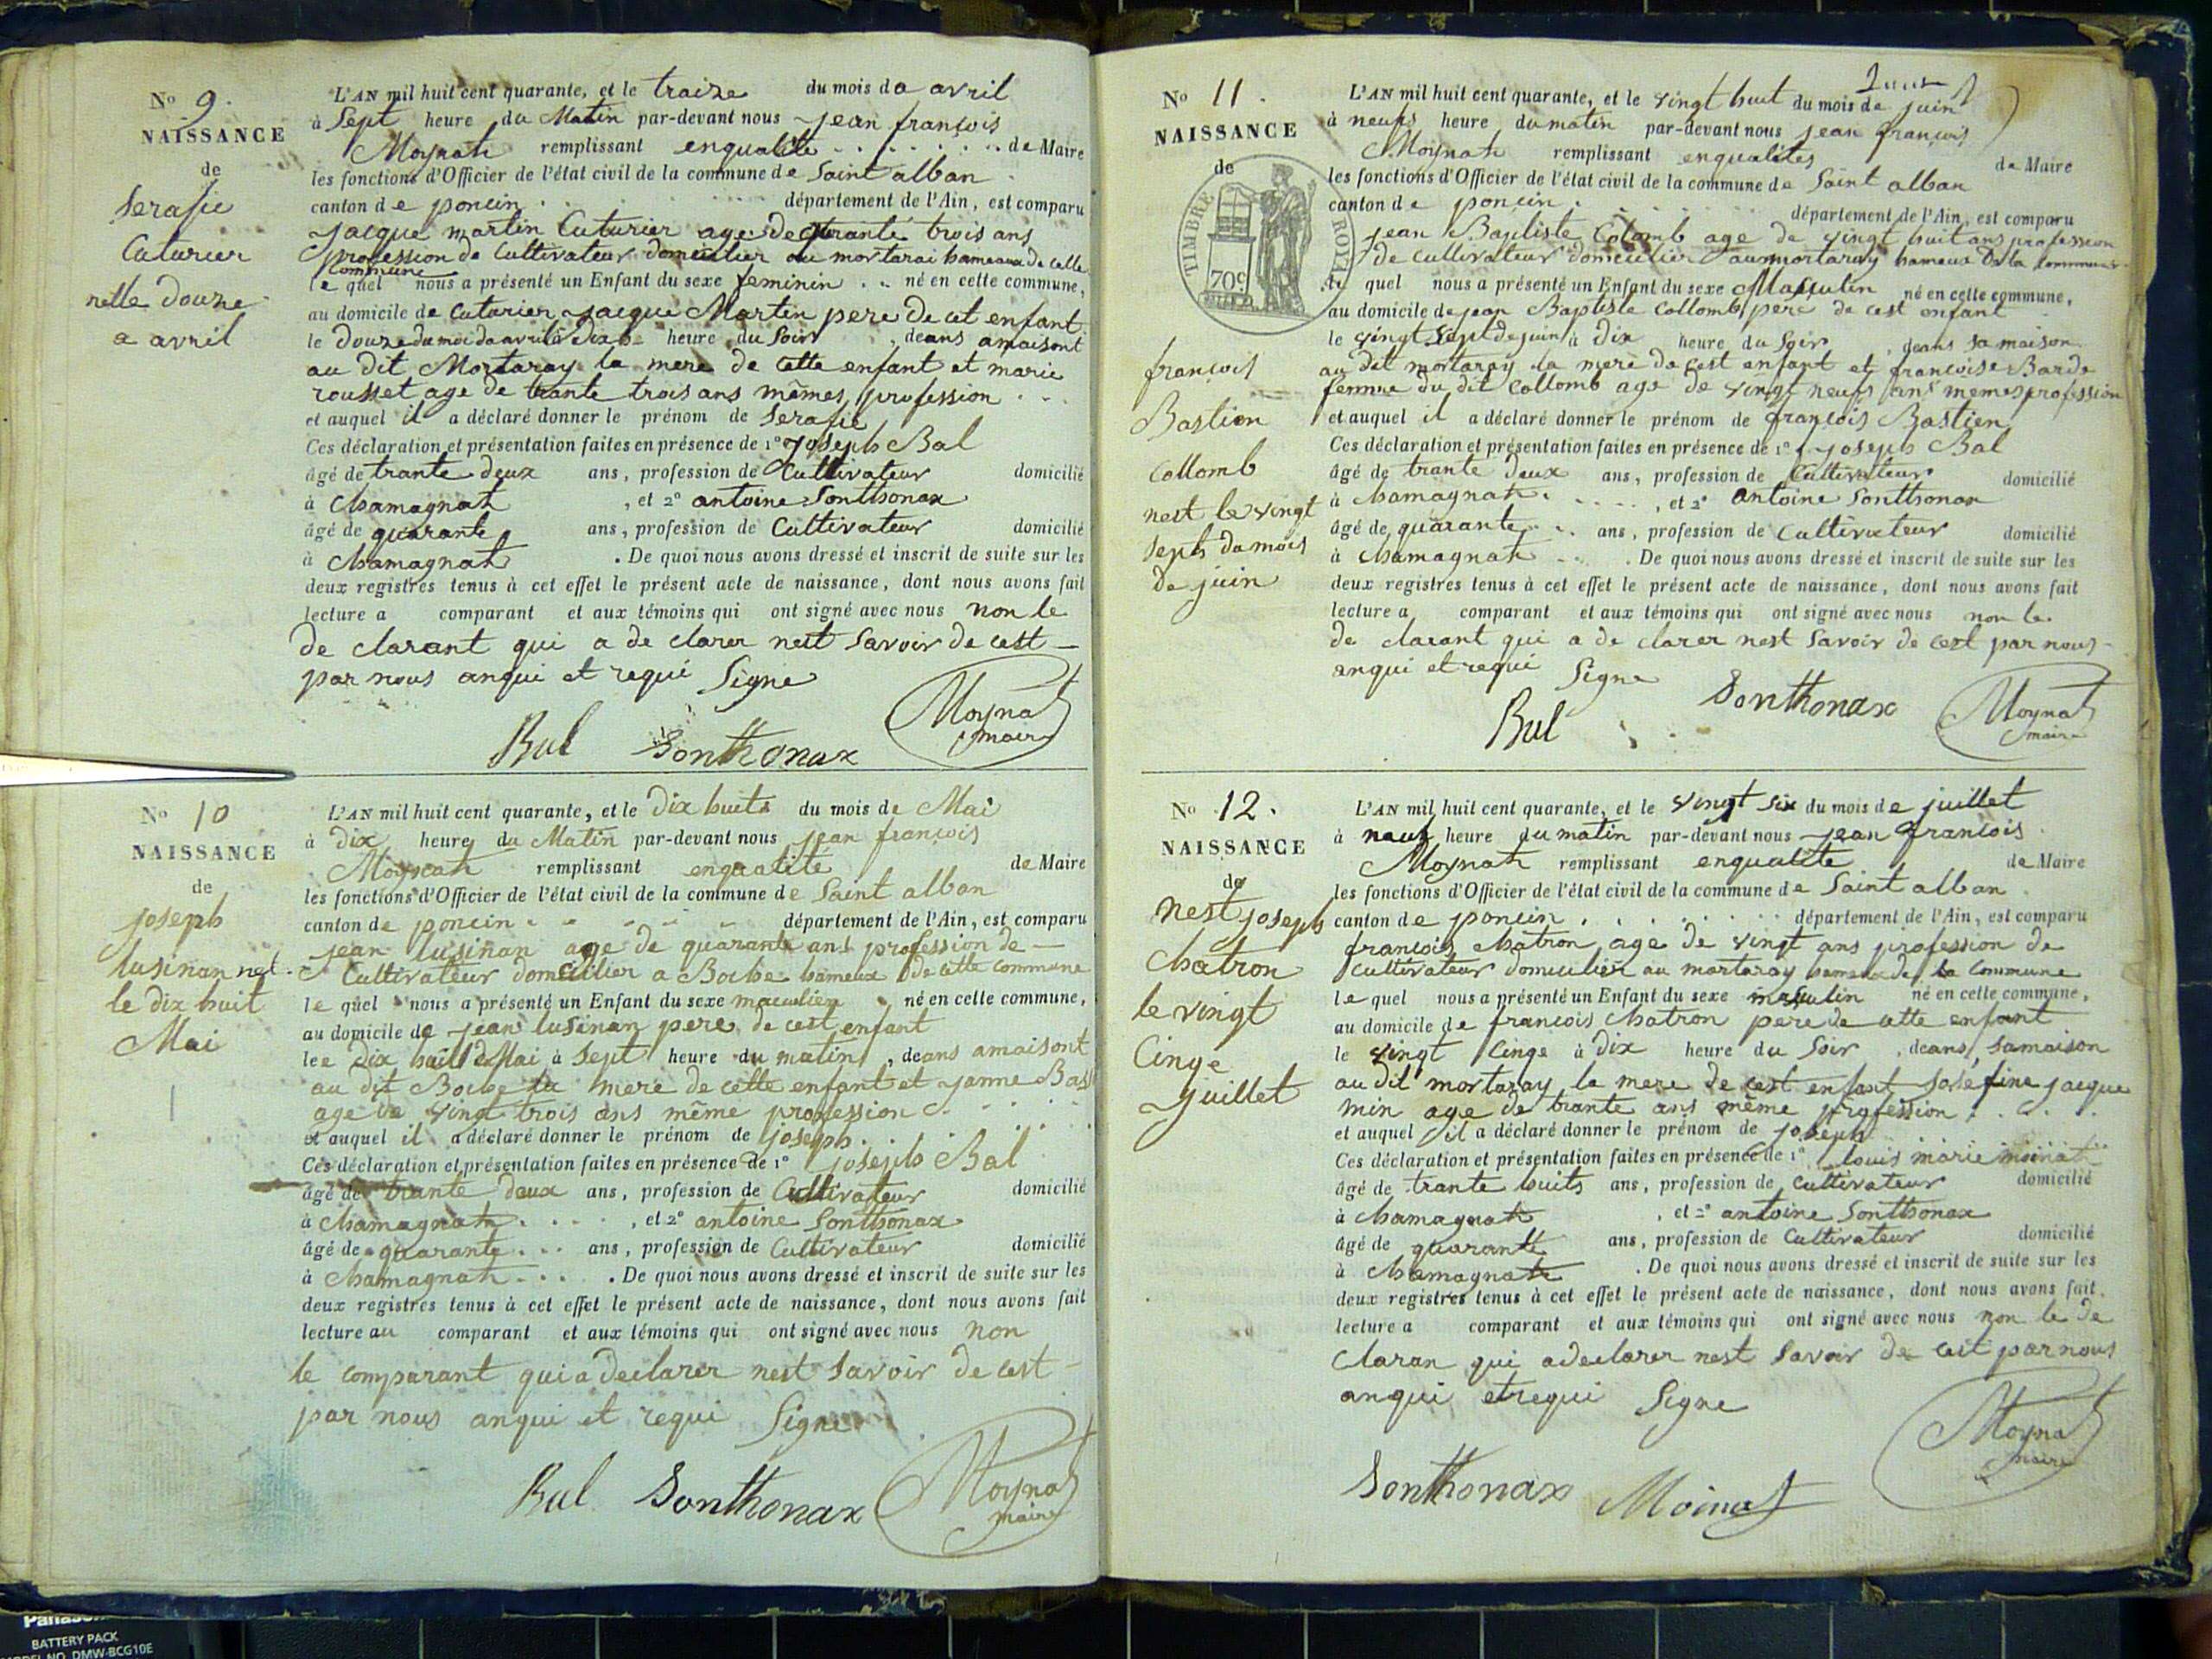 No 9.
NAISSANCE
de
Serafie
Cuturier
nelle douze
a avril
L'AN mil huit cent quarante, et le traize du mois da avril
à Sept heure du Matin par-devant nous jean françois
Moynat remplissant enqualite de Maire
les fonctions d'Officier de l'état civil de la commune de Saint alban
canton de poncin département de l'Ain, est comparu
jacque martin Cuturier age de quranté trois ans
profession de Cultivateur domicilier au mortarai hameaux de celle
commune
le quel nous a présenté un Enfant du sexe feminin né en cette commune,
au domicile de Cuturier jacque Martin pere de cet enfant
le douze du moi da avril à dix heure du Soir, deans amaisont
au dit Mortaray la mere de cette enfant et marie
rousset age de trante trois ans mêmes profession
et auquel il a déclaré donner le prénom de Serafie
Ces déclaration et présentation faites en présence de 1° joseph Bal
âgé de trante deux ans, profession de Cultivateur domicilié
à Chamagnat, et 2° antoine Sonthonax
âgé de quarante ans, profession de Cultivateur domicilié
à Chamagnat. De quoi nous avons dressé et inscrit de suite sur les
deux registres tenus à cet effet le présent acte de naissance, dont nous avons fait
lecture a comparant et aux témoins qui ont signé avec nous non le
de clarant qui a de clarer neit Savoir de cest
par nous anqui et requi Signe
Bal Sonthonax Moynat
maire
No 10
NAISSANCE
de
joseph
lusinan net
le dix huit
Mai
L'AN mil huit cent quarante, et le dix huits du mois de Mai
à dix heure du Matin par-devant nous jean françois
Moynat remplissant enqualite de Maire
les fonctions d'Officier de l'état civil de la commune de Saint alban
canton de poncin département de l'Ain, est comparu
jean lusinan age de quarante ans profession de
Cultivateur domicilier a Bocbe hameux de cette commune
le quel nous a présenté un Enfant du sexe maculien né en cette commune,
au domicile de jean lusinan pere de cest enfant
lee dix huit d Mai à Sept heure du matin, deans amaisont
au dit Bocbe la mere de cette enfant et janne Bas
age de vingt trois ans même profession
et auquel il a déclaré donner le prénom de joseph
Ces déclaration et présentation faites en présence de 1° joseph Bal
âgé de trante deux ans, profession de Cultivateur domicilié
à Chamagnat, et 2° antoine Sonthonax
âgé de quarante ans, profession de Cultivateur domicilié
à Chamagnat. De quoi nous avons dressé et inscrit de suite sur les
deux registres tenus à cet effet le présent acte de naissance, dont nous avons fait
lecture au comparant et aux témoins qui ont signé avec nous non
le comparant qui a declarer nest Savoir de cest
par nous anqui et requi Signe
Bal Sonthonax Moynat
maire
No 11.
NAISSANCE
de
TIMBRE ROYAL
70c
françois
Bastien
Collomb
nest le vingt
Septs da mois
de juin
L'AN mil huit cent quarante, et le vingt huit du mois de juin
à neufs heure du matin par-devant nous jean françois
Moynat remplissant enqualites de Maire
les fonctions d'Officier de l'état civil de la commune de Saint alban
canton de poncin. département de l'Ain, est comparu
jean Baptiste Colomb age de vingt huit ans profession
de cultivateur domicilier aumortaray hameux de la commune
le quel nous a présenté un Enfant du sexe Masculin né en cette commune,
au domicile de jean Baptiste Collomb père de cest enfant
le vingt Sept de juin à dix heure du Soir, deans sa maison
au dit mortaray la mere de cest enfant et françoise Barde
femme du dit Collomb age de vingt neufs ans memes profession
et auquel il a déclaré donner le prénom de françois Bastien
Ces déclaration et présentation faites en présence de 1° joseph Bal
âgé de trante deux ans, profession de Cultivateur domicilié
à Chamagnat, et 2° antoine Sonthonax
âgé de quarante ans, profession de Cultivateur domicilié
à Chamagnat. De quoi nous avons dressé et inscrit de suite sur les
deux registres tenus à cet effet le présent acte de naissance, dont nous avons fait
lecture a comparant et aux témoins qui ont signé avec nous non le
de clarant qui a de clarer nest Savoir de cest par nous
anqui et requi Signe
Bal Sonthonax Moynat
maire
No 12.
NAISSANCE
de
nest joseph
Chatron
le vingt
Cinge
juillet
L'AN mil huit cent quarante, et le vingt Six du mois de juillet
à neuf heure du matin par-devant nous jean francois
Moynat remplissant enqualite de Maire
les fonctions d'Officier de l'état civil de la commune de Saint alban
canton de poncin département de l'Ain, est comparu
francois Chatron age de vingt ans profession de
cultivateur domiculier au mortaray hameux de la commune
le quel nous a présenté un Enfant du sexe masculin né en cette commune,
au domicile de francois Chatron pere de cette enfant
le vingt Cinge à dix heure du Soir, deans Samaison
au dit mortaray la mere de cest enfant josefine jacque
min age de trante ans même profession
et auquel il a déclaré donner le prénom de joseph
Ces déclaration et présentation faites en présence de 1° louis marie moinat
âgé de trante huits ans, profession de Cultivateur domicilié
à Chamagnat, et 2° antoine Sonthonax
âgé de quarante ans, profession de Cultivateur domicilié
à Chamagnat. De quoi nous avons dressé et inscrit de suite sur les
deux registres tenus à cet effet le présent acte de naissance, dont nous avons fait
lecture a comparant et aux témoins qui ont signé avec nous non le de
claran qui adeclarer nest Savoir de cest par nous
anqui etrequi Signe
Sonthonax Moinat Moynat
maire
BATTERY PACK
MODEL NO. DMW-BCG10E